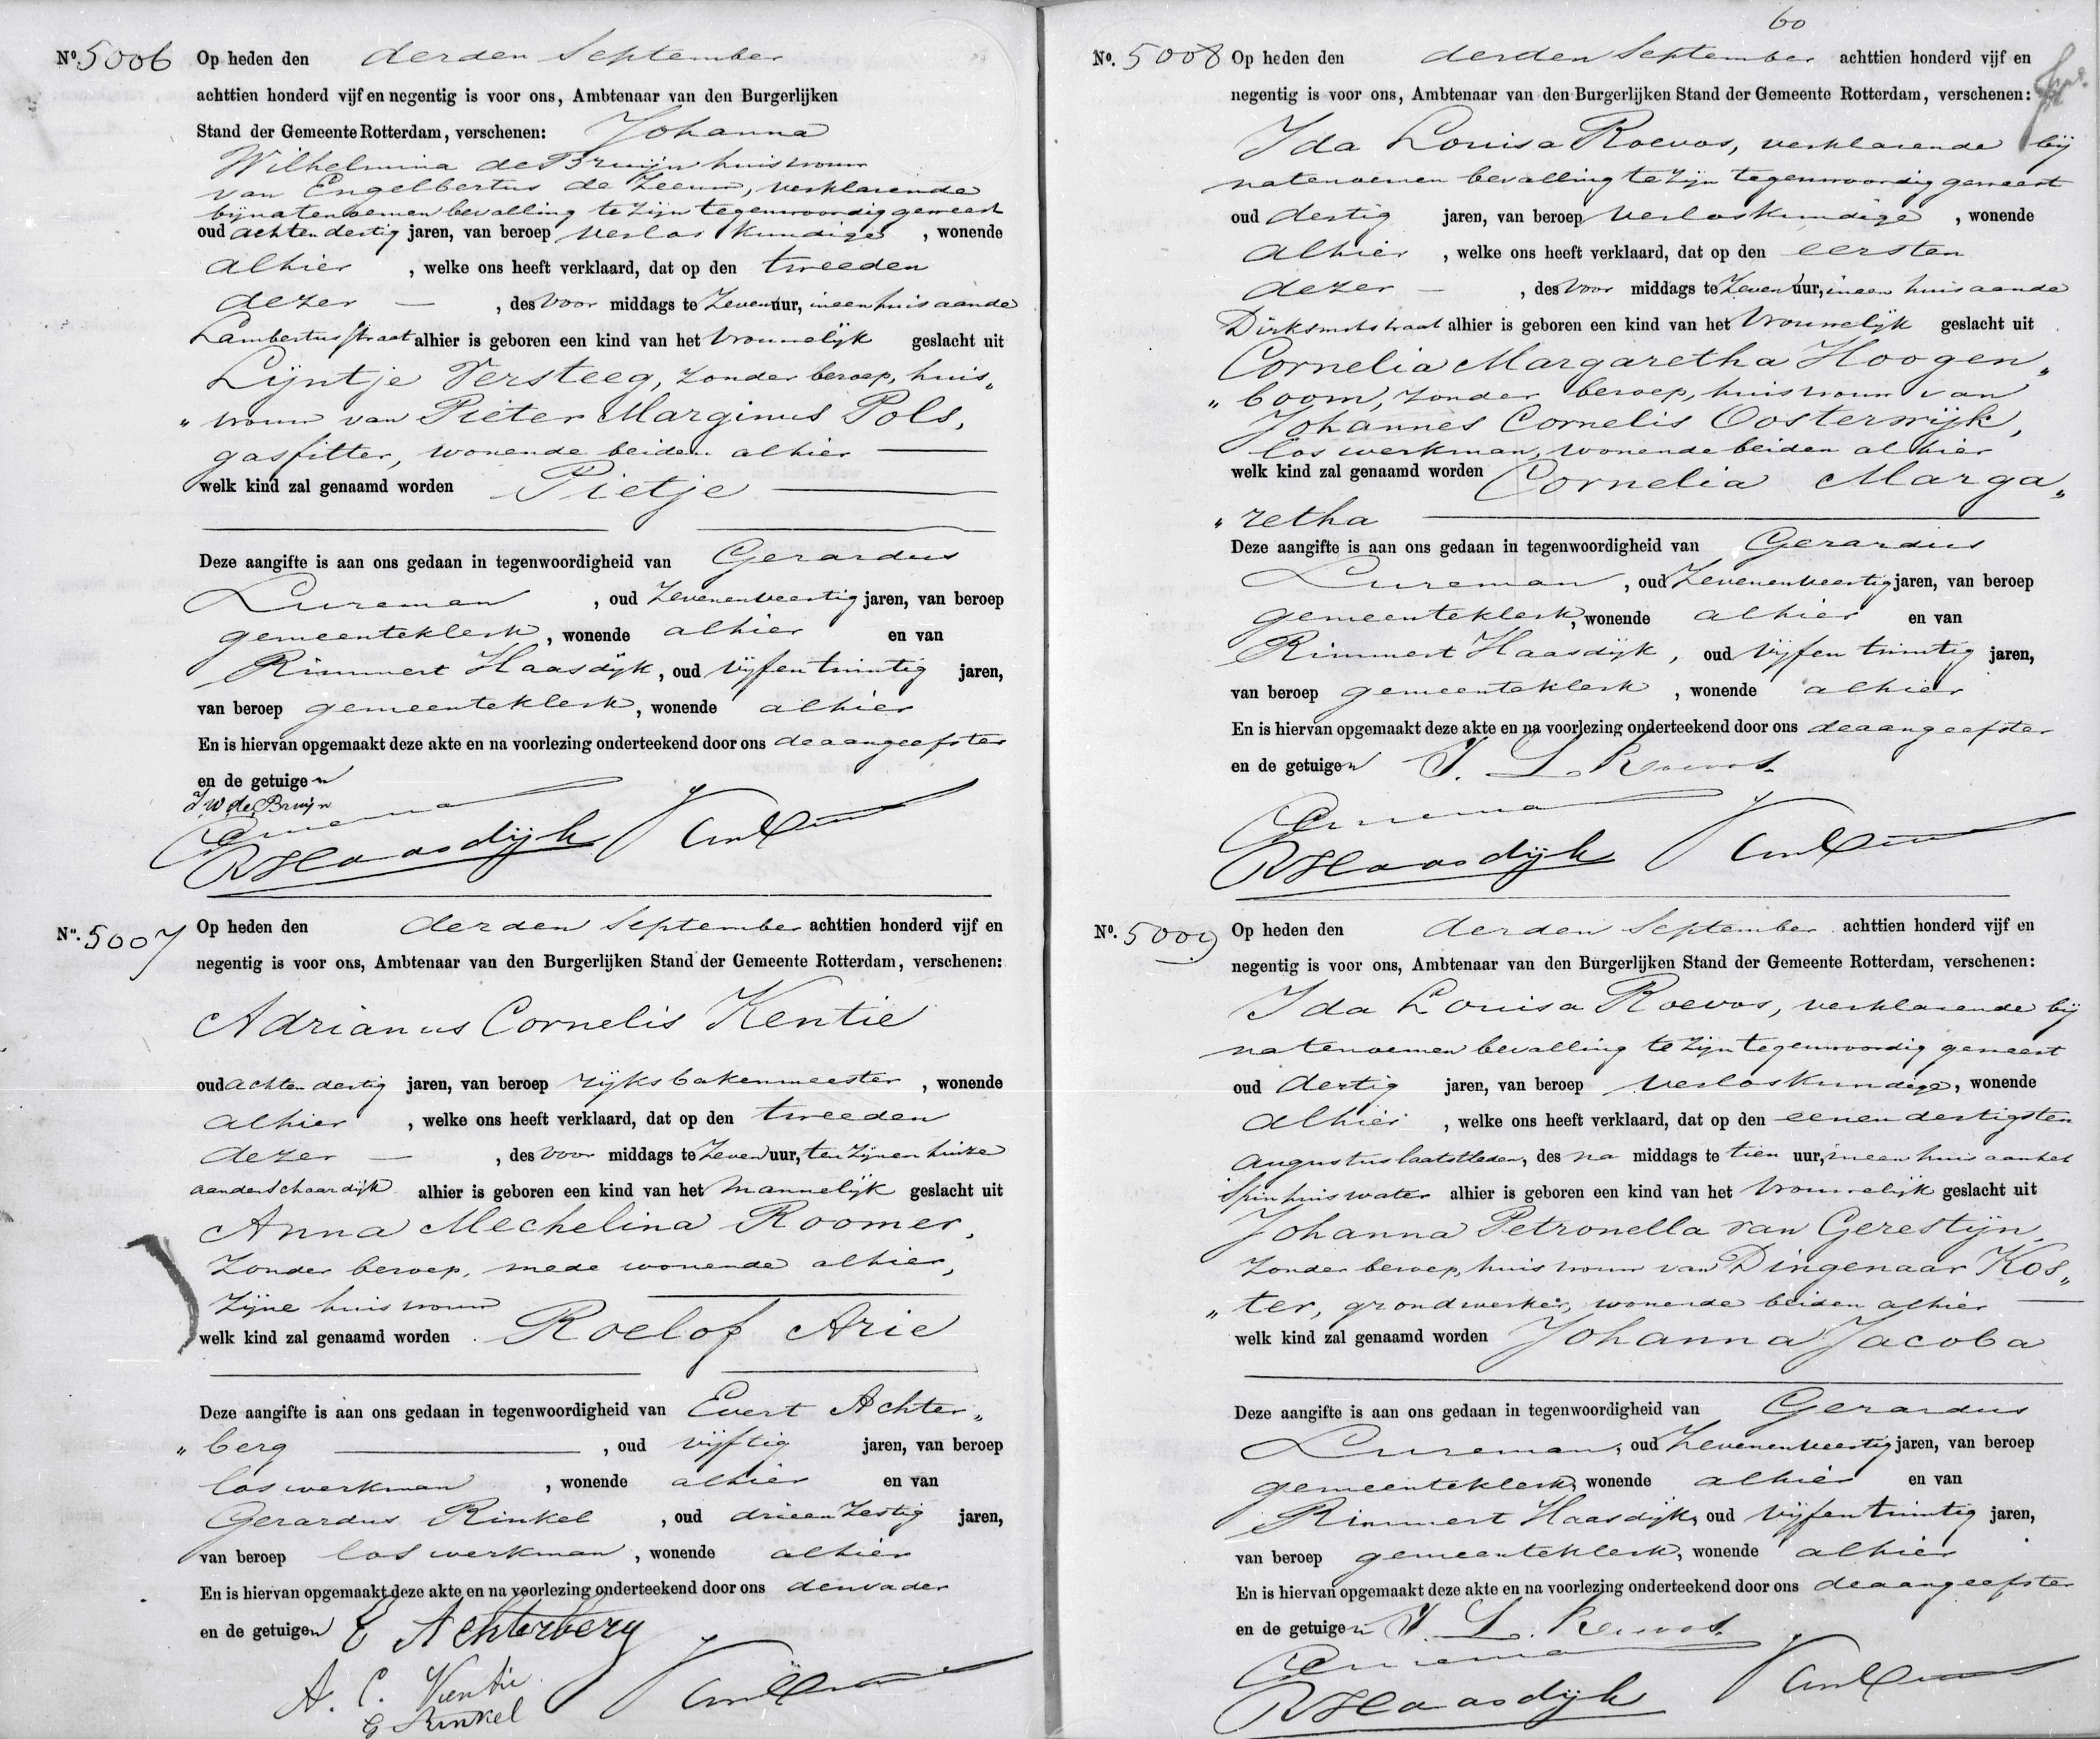 No. 5006 Op heden den derden September
achttien honderd vijf en negentig is voor ons, Ambtenaar van den Burgerlijken
Stand der Gemeente Rotterdam, verschenen: Johanna
Wilhelmina de Bruijn huisvrouw
van Engelbertus de Zeeuw, verklarende
bijnatenoemen bevalling te zijn tegenwoordig geweest
oud achtendertig jaren, van beroep verloskundige, wonende
alhier, welke ons heeft verklaard, dat op den tweeden
dezer —, des voor middags te zeven uur, in een huis aan de
Lambertusstraat alhier is geboren een kind van het vrouwelijk geslacht uit
Lijntje Versteeg, zonder beroep, huis„
„vrouw van Pieter Marginus Pols,
gasfitter, wonende beiden alhier —
welk kind zal genaamd worden Pietje —
Deze aangifte is aan ons gedaan in tegenwoordigheid van Gerardus
Lureman, oud zevenenveertig jaren, van beroep
gemeenteklerk, wonende alhier en van
Rimmert Haasdijk, oud vijfentwintig jaren,
van beroep gemeenteklerk, wonende alhier
En is hiervan opgemaakt deze akte en na voorlezing onderteekend door ons de aangeefster
en de getuigen
J W de Bruijn
R Haasdijk
No. 5007 Op heden den derden September achttien honderd vijf en
negentig is voor ons, Ambtenaar van den Burgerlijken Stand der Gemeente Rotterdam, verschenen:
Adrianus Cornelis Kentie
oud achtendertig jaren, van beroep rijksbakenmeester, wonende
alhier, welke ons heeft verklaard, dat op den tweeden
dezer —, des voor middags te zeven uur, ten zijnen huize
aan den Schaardijk alhier is geboren een kind van het mannelijk geslacht uit
Anna Mechelina Roomer,
zonder beroep, mede wonende alhier,
zijne huisvrouw —
welk kind zal genaamd worden Roelof Arie
Deze aangifte is aan ons gedaan in tegenwoordigheid van Evert Achter„
„berg —, oud vijftig jaren, van beroep
loswerkman, wonende alhier en van
Gerardus Rinkel, oud drieenzestig jaren,
van beroep loswerkman, wonende alhier
En is hiervan opgemaakt deze akte en na voorlezing onderteekend door ons den vader
en de getuigen E Achterberg
A. C. Kentie
G Rinkel
60
No. 5008 Op heden den derden September achttien honderd vijf en
negentig is voor ons, Ambtenaar van den Burgerlijken Stand der Gemeente Rotterdam, verschenen:
Ida Louisa Roevos, verklarende bij
natenoemen bevalling te zijn tegenwoordig geweest
oud dertig jaren, van beroep verloskundige, wonende
alhier, welke ons heeft verklaard, dat op den eersten
dezer —, des voor middags te zeven uur, in een huis aan de
Dirksmitstraat alhier is geboren een kind van het vrouwelijk geslacht uit
Cornelia Margaretha Hoogen„
„boom, zonder beroep, huisvrouw van
Johannes Cornelis Oosterwijk,
loswerkman, wonende beiden alhier
welk kind zal genaamd worden Cornelia Marga„
„retha —
Deze aangifte is aan ons gedaan in tegenwoordigheid van Gerardus
Lureman, oud zevenenveertig jaren, van beroep
gemeenteklerk, wonende alhier en van
Rimmert Haasdijk, oud vijfentwintig jaren,
van beroep gemeenteklerk, wonende alhier
En is hiervan opgemaakt deze akte en na voorlezing onderteekend door ons de aangeefster
en de getuigen I. L. Roevos.
R Haasdijk
No. 5009 Op heden den derden September achttien honderd vijf en
negentig is voor ons, Ambtenaar van den Burgerlijken Stand der Gemeente Rotterdam, verschenen:
Ida Louisa Roevos, verklarende bij
natenoemen bevalling te zijn tegenwoordig geweest
oud dertig jaren, van beroep verloskundige, wonende
alhier, welke ons heeft verklaard, dat op den eenendertigsten
Augustus laatstleden, des na middags te tien uur, in een huis aan het
Spinhuiswater alhier is geboren een kind van het vrouwelijk geslacht uit
Johanna Petronella van Gerestijn,
zonder beroep, huisvrouw van Dingenaar Kos„
„ter, grondwerker, wonende beiden alhier —
welk kind zal genaamd worden Johanna Jacoba
Deze aangifte is aan ons gedaan in tegenwoordigheid van Gerardus
Lureman, oud zevenenveertig jaren, van beroep
gemeenteklerk, wonende alhier en van
Rimmert Haasdijk, oud vijfentwintig jaren,
van beroep gemeenteklerk, wonende alhier
En is hiervan opgemaakt deze akte en na voorlezing onderteekend door ons de aangeefster
en de getuigen I. L. Roevos.
R Haasdijk